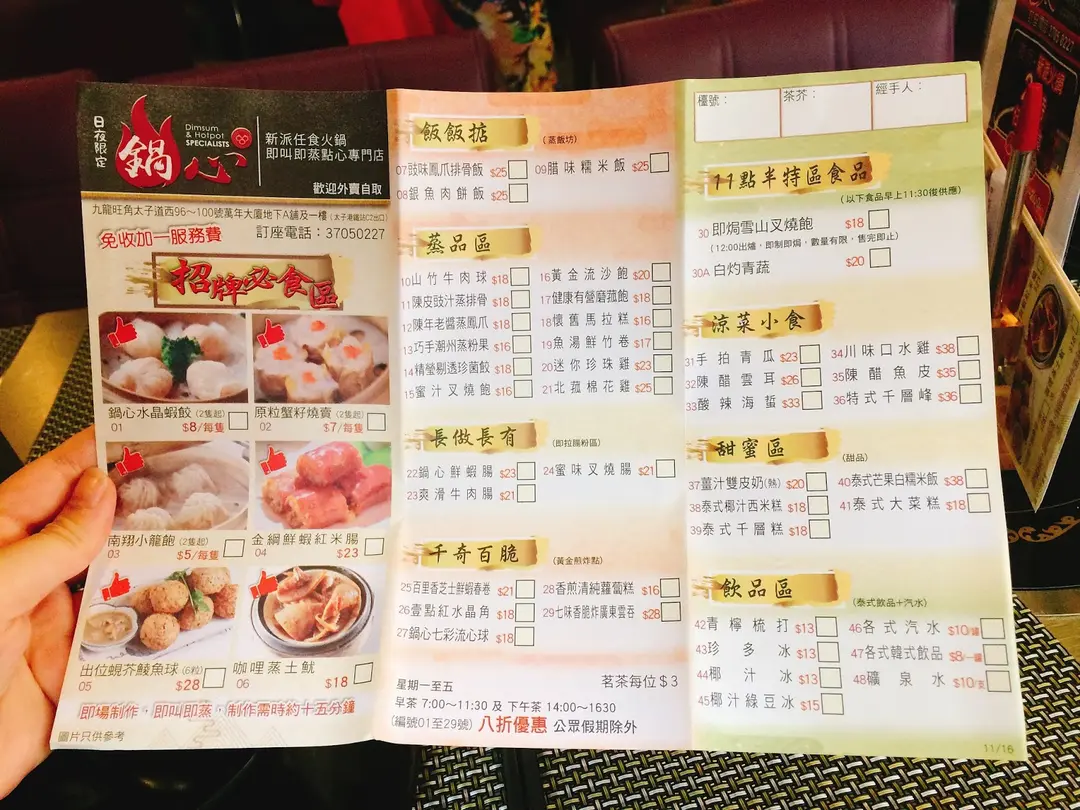 日夜限定
鍋心
Dimsum
& Hotpot
SPECIALISTS
新派任食火鍋
即叫即蒸點心專門店
歡迎外賣自取
九龍旺角太子道西96～100號萬年大廈地下A舖及一樓 (太子港鐵站C2出口)
免收加一服務費
訂座電話：37050227
招牌必食區
鍋心水晶蝦餃 (2隻起)
01 $8/每隻
原粒蟹籽燒賣 (2隻起)
02 $7/每隻
南翔小籠飽 (2隻起)
03 $5/每隻
金鋼鮮蝦紅米腸
04 $23
出位蜆芥鯪魚球 (6粒)
05 $28
咖哩蒸土魷
06 $18
即場制作，即叫即蒸，制作需時約十五分鐘
圖片只供參考
飯飯掂 (蒸飯坊)
07豉味鳳爪排骨飯 $25
09腊味糯米飯 $25
08銀魚肉餅飯 $25
蒸品區
10山竹牛肉球 $18
16黃金流沙飽 $20
11陳皮豉汁蒸排骨 $18
17健康有營磨菰飽 $18
12陳年老醬蒸鳳爪 $18
18懷舊馬拉糕 $16
13巧手潮州蒸粉果 $16
19魚湯鮮竹卷 $17
14精瑩剔透珍菌餃 $18
20迷你珍珠雞 $23
15蜜汁叉燒飽 $16
21北菰棉花雞 $25
長做長有 (即拉腸粉區)
22鍋心鮮蝦腸 $23
24蜜味叉燒腸 $21
23爽滑牛肉腸 $21
千奇百脆 (黃金煎炸點)
25百里香芝士鮮蝦春卷 $21
28香煎清純蘿蔔糕 $16
26壹點紅水晶角 $18
29七味香脆炸廣東雲吞 $28
27鍋心七彩流心球 $18
星期一至五
茗茶每位$3
早茶 7:00～11:30 及 下午茶 14:00～1630
(編號01至29號) 八折優惠 公眾假期除外
檯號：
茶芥：
經手人：
11點半特區食品
(以下食品早上11:30後供應)
30 即焗雪山叉燒飽 $18
(12:00出爐，即制即焗，數量有限，售完即止)
30A 白灼青蔬 $20
涼菜小食
31手拍青瓜 $23
34川味口水雞 $38
32陳醋雲耳 $26
35陳醋魚皮 $35
33酸辣海蜇 $33
36特式千層峰 $36
甜蜜區 (甜品)
37薑汁雙皮奶(熱) $20
40泰式芒果白糯米飯 $38
38泰式椰汁西米糕 $18
41泰式大菜糕 $18
39泰式千層糕 $18
飲品區 (泰式飲品+汽水)
42青檸梳打 $13
46各式汽水 $10/罐
43珍多冰 $13
47各式韓式飲品 $8/罐
44椰汁冰 $13
48礦泉水 $10/支
45椰汁綠豆冰 $15
11/16